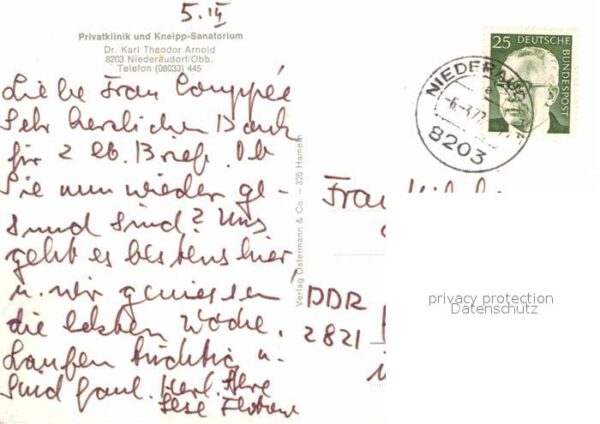 5. III
Privatklinik und Kneipp-Sanatorium
Dr. Karl Theodor Arnold
8203 Niederaudorf/Obb.
Telefon (08033) 445
Liebe Frau
Sehr herzlichen Dank
für 2 lb. Briefe. Ob
Sie nun wieder ge-
sund sind? Uns
geht es bestens hier,
u. wir geniessen
die letzten Woche.
Laufen tüchtig u.
sind faul. Herzl. Ihre
25 DEUTSCHE BUNDESPOST
NIEDERAUDORF
8203
Verlag Ostermann & Co. – 325 Hameln
Frau
DDR
2821
privacy protection
Datenschutz